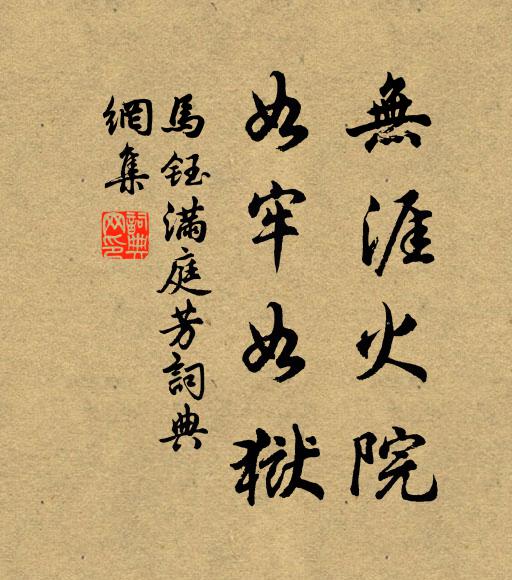 無涯火院
如牢如獄
馬鈺滿庭芳詞典
網集
詞典網印